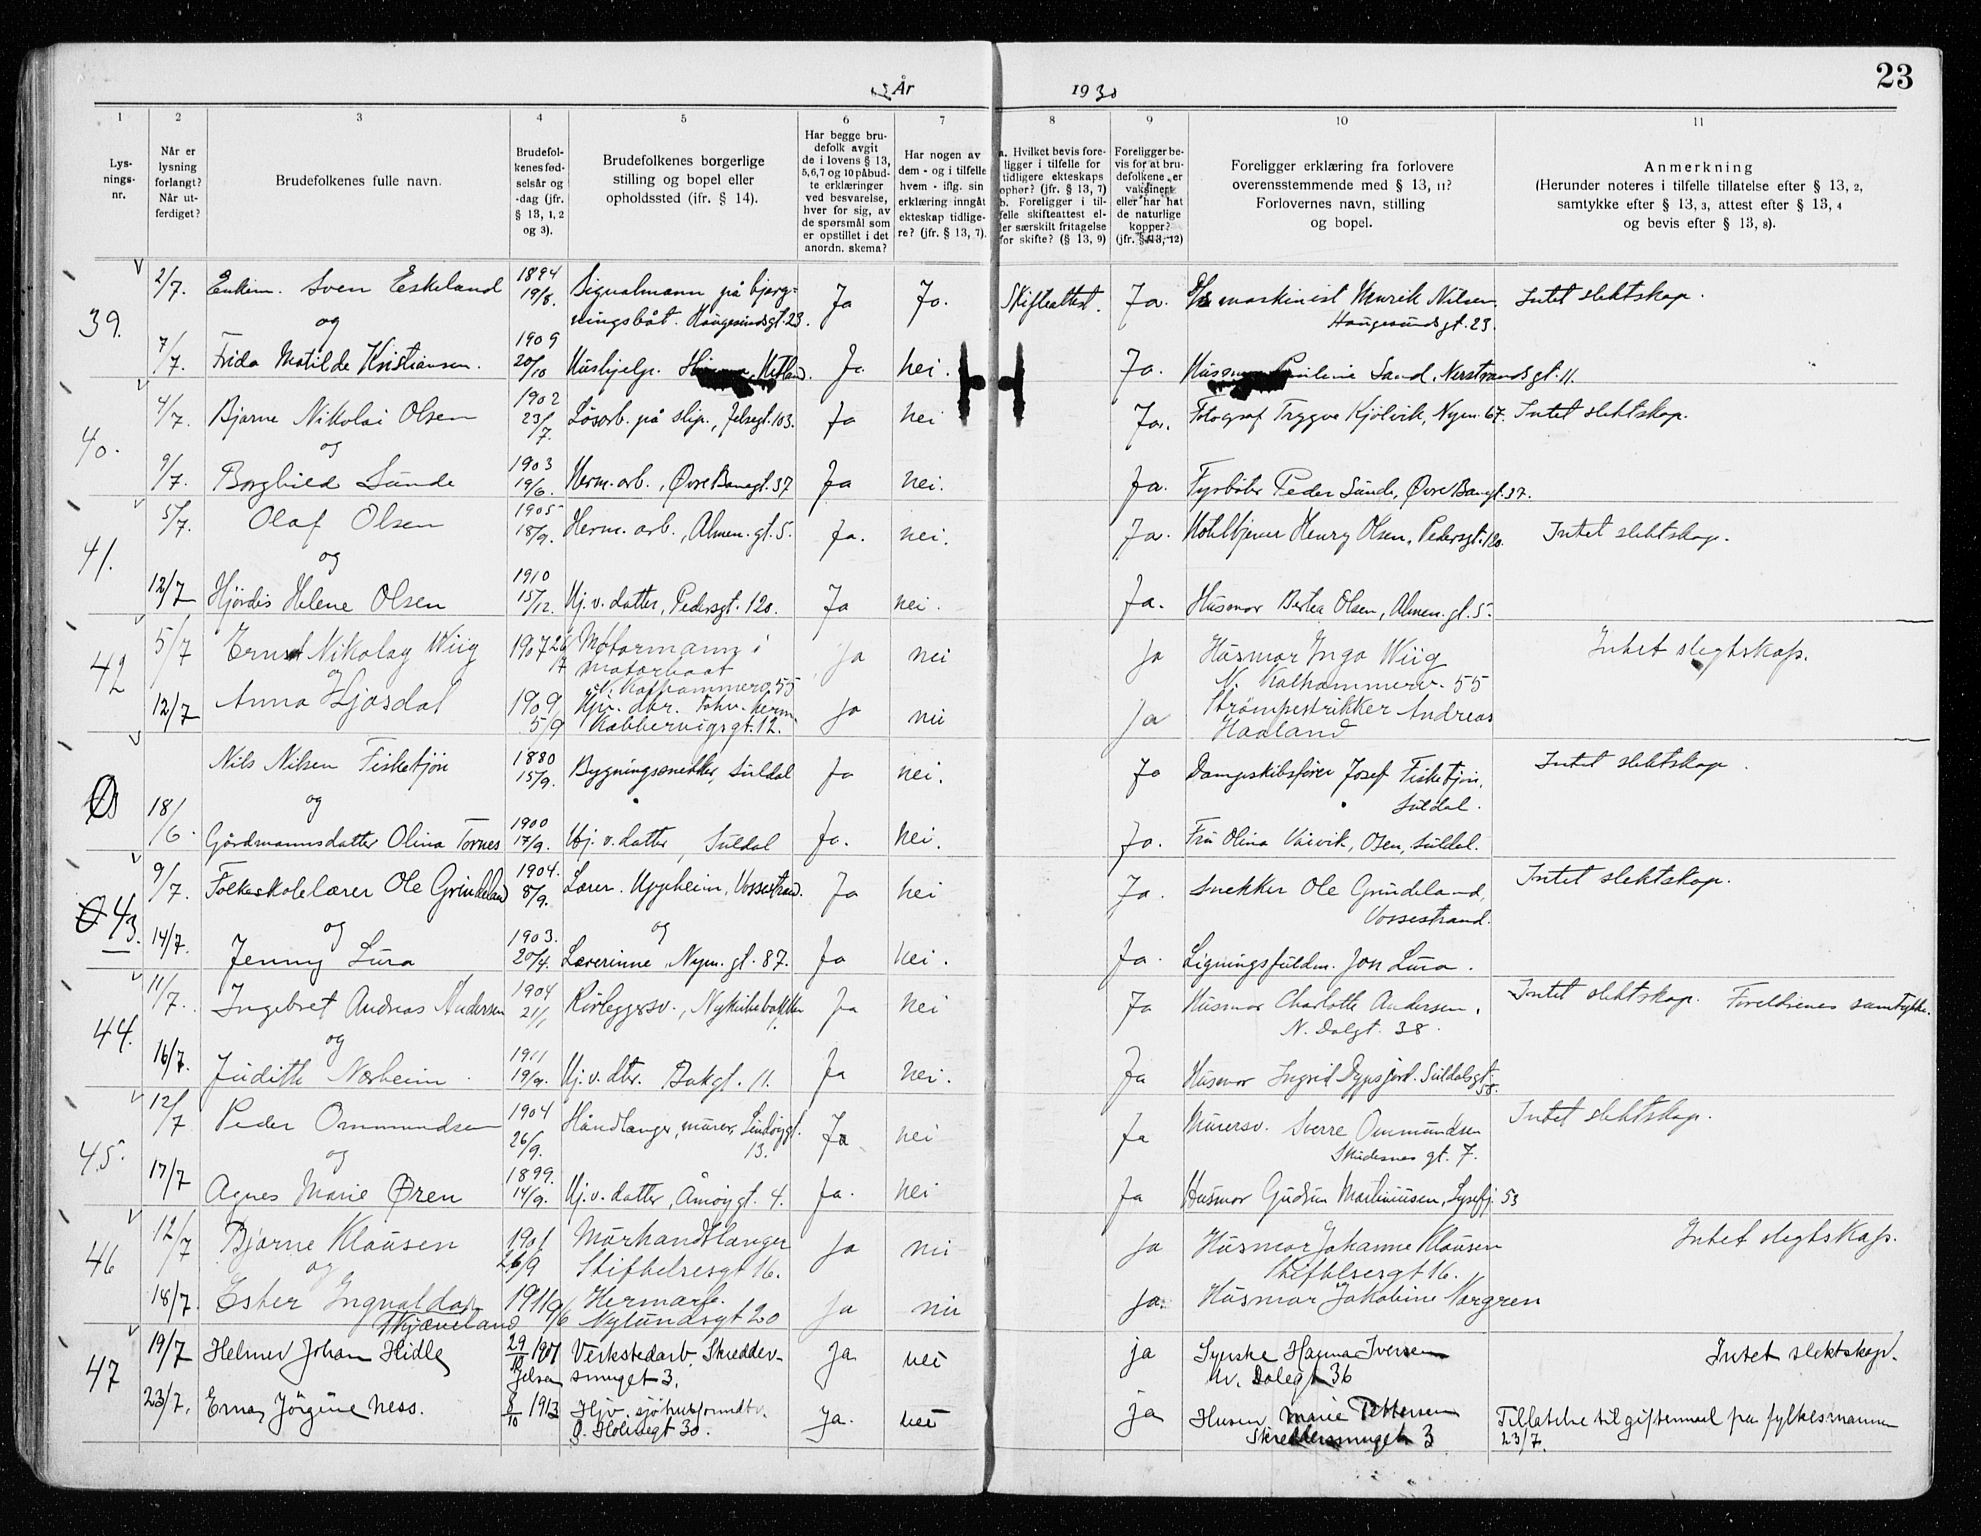 23
År 1930
1 2 3 4 5 6 7 8 9 10 11
Lys-
nings-
nr.
Når er
lysning
forlangt?
Når ut-
ferdiget?
Brudefolkenes fulle navn.
Brudefol-
kenes fød-
selsår og
-dag (jfr.
§ 13, 1, 2
og 3).
Brudefolkenes borgerlige
stilling og bopel eller
opholdssted (ifr. § 14).
Har begge bru-
defolk avgit
de i lovens § 13,
5,6,7 og 10 påbud-
te erklæringer
ved besvarelse,
hver for sig, av
de spørsmål som
er opstillet i det
anordn. skema?
Har nogen av
dem - og i tilfelle
hvem - iflg. sin
erklæring inngåt
ekteskap tidlige-
re? (jfr. § 13, 7).
a. Hvilket bevis fore-
ligger i tilfelle for
tidligere ekteskaps
ophør? (jfr. § 13, 7)
b. Foreligger i til-
felle skifteattest el-
ler særskilt fritagelse
for skifte? (§ 13, 9)
Foreligger be-
vis for at bru-
defolkene er
vaksinert
eller har hat
de naturlige
kopper?
(jfr. § 13, 12)
Foreligger erklæring fra forlovere
overensstemmende med § 13, 11?
Forlovernes navn, stilling
og bopel.
Anmerkning
(Herunder noteres i tilfelle tillatelse efter § 13, 2,
samtykke efter § 13, 3, attest efter § 13, 4
og bevis efter § 13, 8).
39. 2/7. Enkem. Sven Eskeland 1894 19/8. Signalmann på bjerg-
ningsbåt. Haugesundsgt. 23. Ja Ja. Skifteattest. Ja. maskinist Henrik Nilsen, Haugesundsgt. 23. Intet slektskap.
og
7/7. Frida Matilde Kristiansen. 1909 20/10 Hushjelp. Ja. nei. Ja. Pauline Sand, Nerstrandsgt. 11.
40. 4/7. Bjarne Nikolai Olsen 1902 23/7. Løsarb. på slip., Jelsegt. 103. Ja nei Ja. Fotograf Trygve Kjølvik, Nym. 67. Intet slektskap.
og
9/7. Borghild Sunde 1903 19/6. Herm. arb., Øvre Banegt. 37 Ja nei. Ja. Fyrbøter Peder Sunde, Øvre Banegt. 37.
41. 5/7. Olaf Olsen 1905 18/9. Herm. arb., Almen. gt. 5. Ja. nei. Ja. Henry Olsen, Pedersgt. 120. Intet slektskap.
og
12/7 Hjørdis Helene Olsen 1910 15/12. Hj. v. datter, Pedersgt. 120. Ja nei. Ja. Husmor Bertea Olsen, Almen. gt. 5.
42 5/7 Ernst Nikolay Wiig 1907 Motormann i
motorbaat
N. Kalhammerv. 55 Ja nei Ja Husmor Inga Wiig
N. Kalhammerv. 55 Intet slegtskap.
og
12/7 Anna Hjosdal 1909 5/9 Hjv. dtr. herm.
Kabbervigsgt. 12. Ja nei Ja Strømpestrikker Andreas
Haaland
Nils Nilsen Fisketjøn 1880 15/9. Bygningssnekker, Suldal Ja nei. Ja Dampskibsfører Josef Fisketjøn,
Suldal. Intet slektskap.
og
18/6. Gårdmannsdatter Olina Tornes 1900 17/9. Hj. v. datter, Suldal Ja. nei. Ja. Fru Olina Vaivik, Osen, Suldal.
43. 9/7. Folkeskolelærer Ole Grindeland 1904. 8/9. Lærer. Uppheim, Vossestrand. Ja nei Ja. Snekker Ole Grindeland,
Vossestrand. Intet slektskap.
og og
14/7. Jenny Lura 1903. 20/4. Lærerinne, Nym. gt. 87. Ja nei. Ja. Ligningsfuldm. Jon Lura.
44. 11/7. Ingebret Andreas Andersen 1904 21/1 Rørleggersv., Nykirkebakken Ja nei Ja Husmor Charlotte Andersen,
N. Dalgt. 38. Intet slektskap. Foreldrenes samtykke.
og
16/7. Judith Norheim 1911 19/9. Hj. v. dtr. Bakgt. 11. Ja nei. Ja Husmor Ingrid Suldalsgt. 58.
45. 12/7 Peder Ommundsen 1904 26/9. Håndlanger, murer, Lindøygt.
13. Ja nei Ja Murersv. Sverre Ommundsen
Skudesnes gt. 7. Intet slektskap.
og
17/7 Agnes Marie Øren 1899. 14/9. Hj. v. datter, Åmøygt. 4. Ja. nei Ja Husmor Gudrun Martinusen, Lysefj. 53
46 12/7 Bjarne Klausen 1901 26/9 Murhandtlanger
Stiftelsesgt 16. Ja nei Ja Husmor Johanne Klausen
Stiftelsesgt 16. Intet slegtskap.
og
18/7. Ester Ingvalda
Skjæveland 1911 9/6 Hermarb.
Nylundsgt 20 Ja nei Ja. Husmor Jakobine Norgren
47 19/7 Helmer Johan Hidle 29/10 1901
Jelsa Verkstedarb. Skredder-
smuget 3. Ja nei ja Syerske Hanna Iversen
Nr. Dalegt 36 Intet slektskap.
23/7. Erna Jørgine Ness. 8/10 1913 Hjv.
Ø. Holmegt 30. Ja. nei ja Husm. Marie Pettersen
Skreddersmuget 3 Tillatelse til giftermål fra fylkesmannen
23/7.